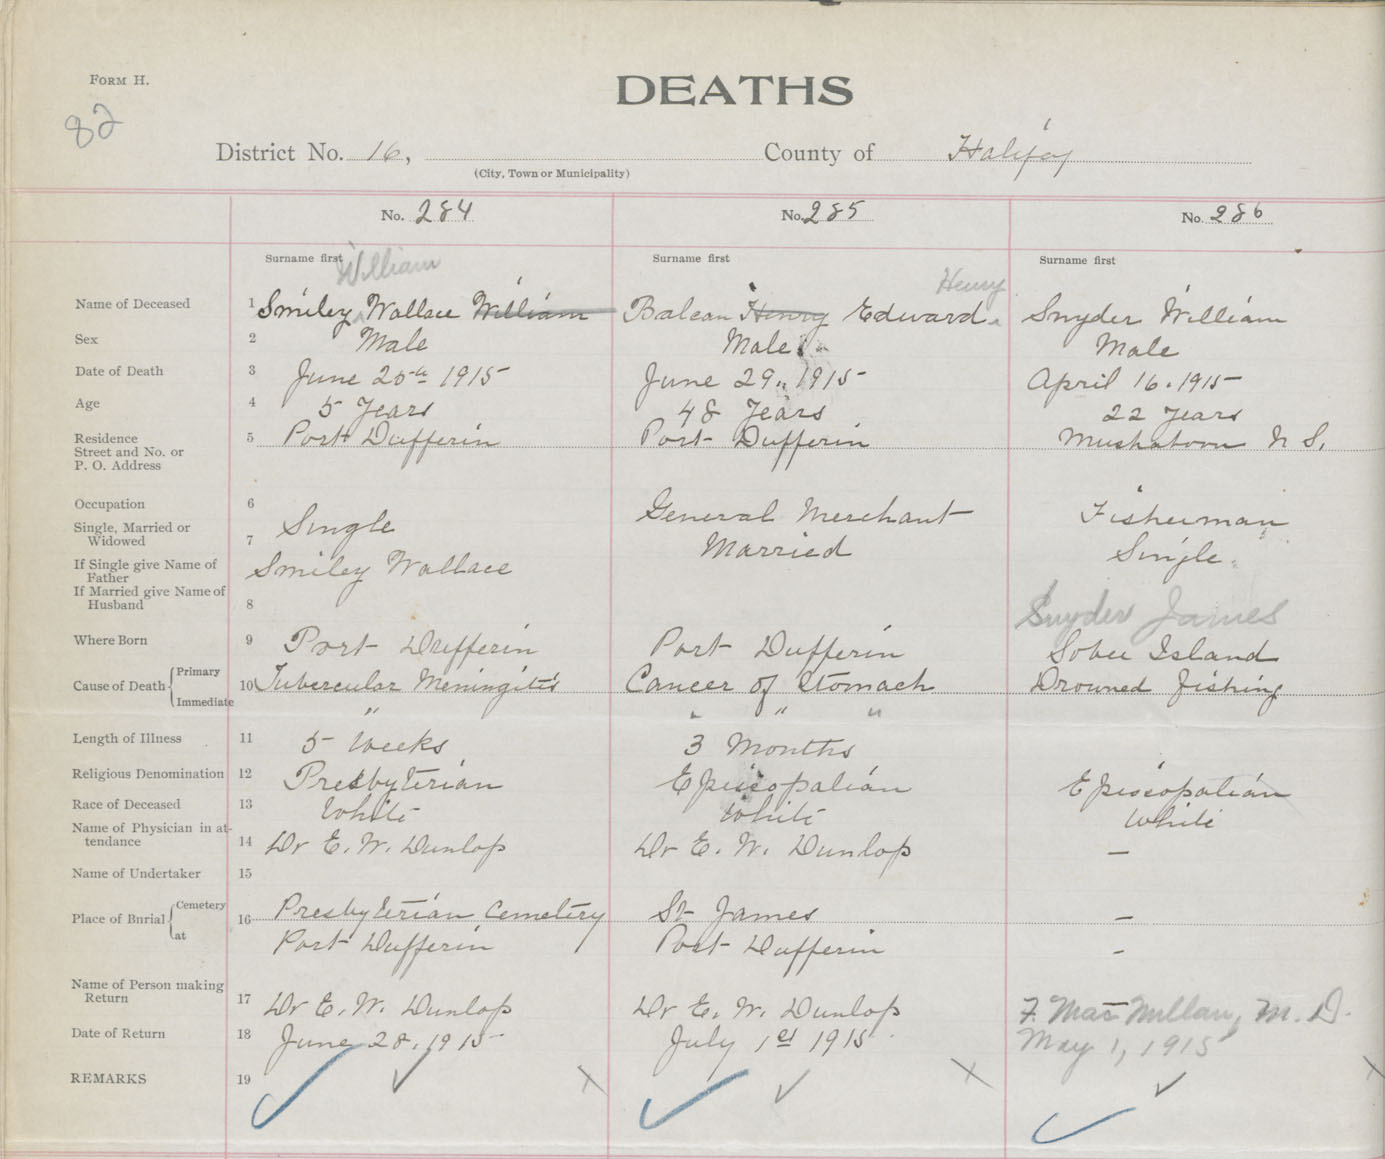 FORM H.
82
DEATHS
District No. 16, County of Halifax
(City, Town or Municipality)
No. 284 No. 285 No. 286
Surname first Surname first Surname first
William Henry
Name of Deceased 1 Smiley Wallace William Balcan Henry Edward Snyder William
Sex 2 Male Male Male
Date of Death 3 June 25th 1915 June 29.. 1915 April 16. 1915
Age 4 5 Years 48 Years 22 Years
Residence Street and No. or P. O. Address 5 Port Dufferin Port Dufferin Mushaboon N S.
Occupation 6 General Merchant Fisherman
Single, Married or Widowed 7 Single Married Single
If Single give Name of Father Smiley Wallace
If Married give Name of Husband 8 Snyder James
Where Born 9 Port Dufferin Port Dufferin Sober Island
Cause of Death Primary 10 Tubercular Meningitis Cancer of Stomach Drowned fishing
Immediate " " " "
Length of Illness 11 5 Weeks 3 Months
Religious Denomination 12 Presbyterian Episcopalian Episcopalian
Race of Deceased 13 White White White
Name of Physician in attendance 14 Dr E. W. Dunlop Dr E. W. Dunlop —
Name of Undertaker 15
Place of Burial Cemetery 16 Presbyterian Cemetery St James —
at Port Dufferin Port Dufferin —
Name of Person making Return 17 Dr E. W. Dunlop Dr E. W. Dunlop F. MacMillan, M. D.
Date of Return 18 June 28. 1915 July 1st 1915 May 1, 1915
REMARKS 19